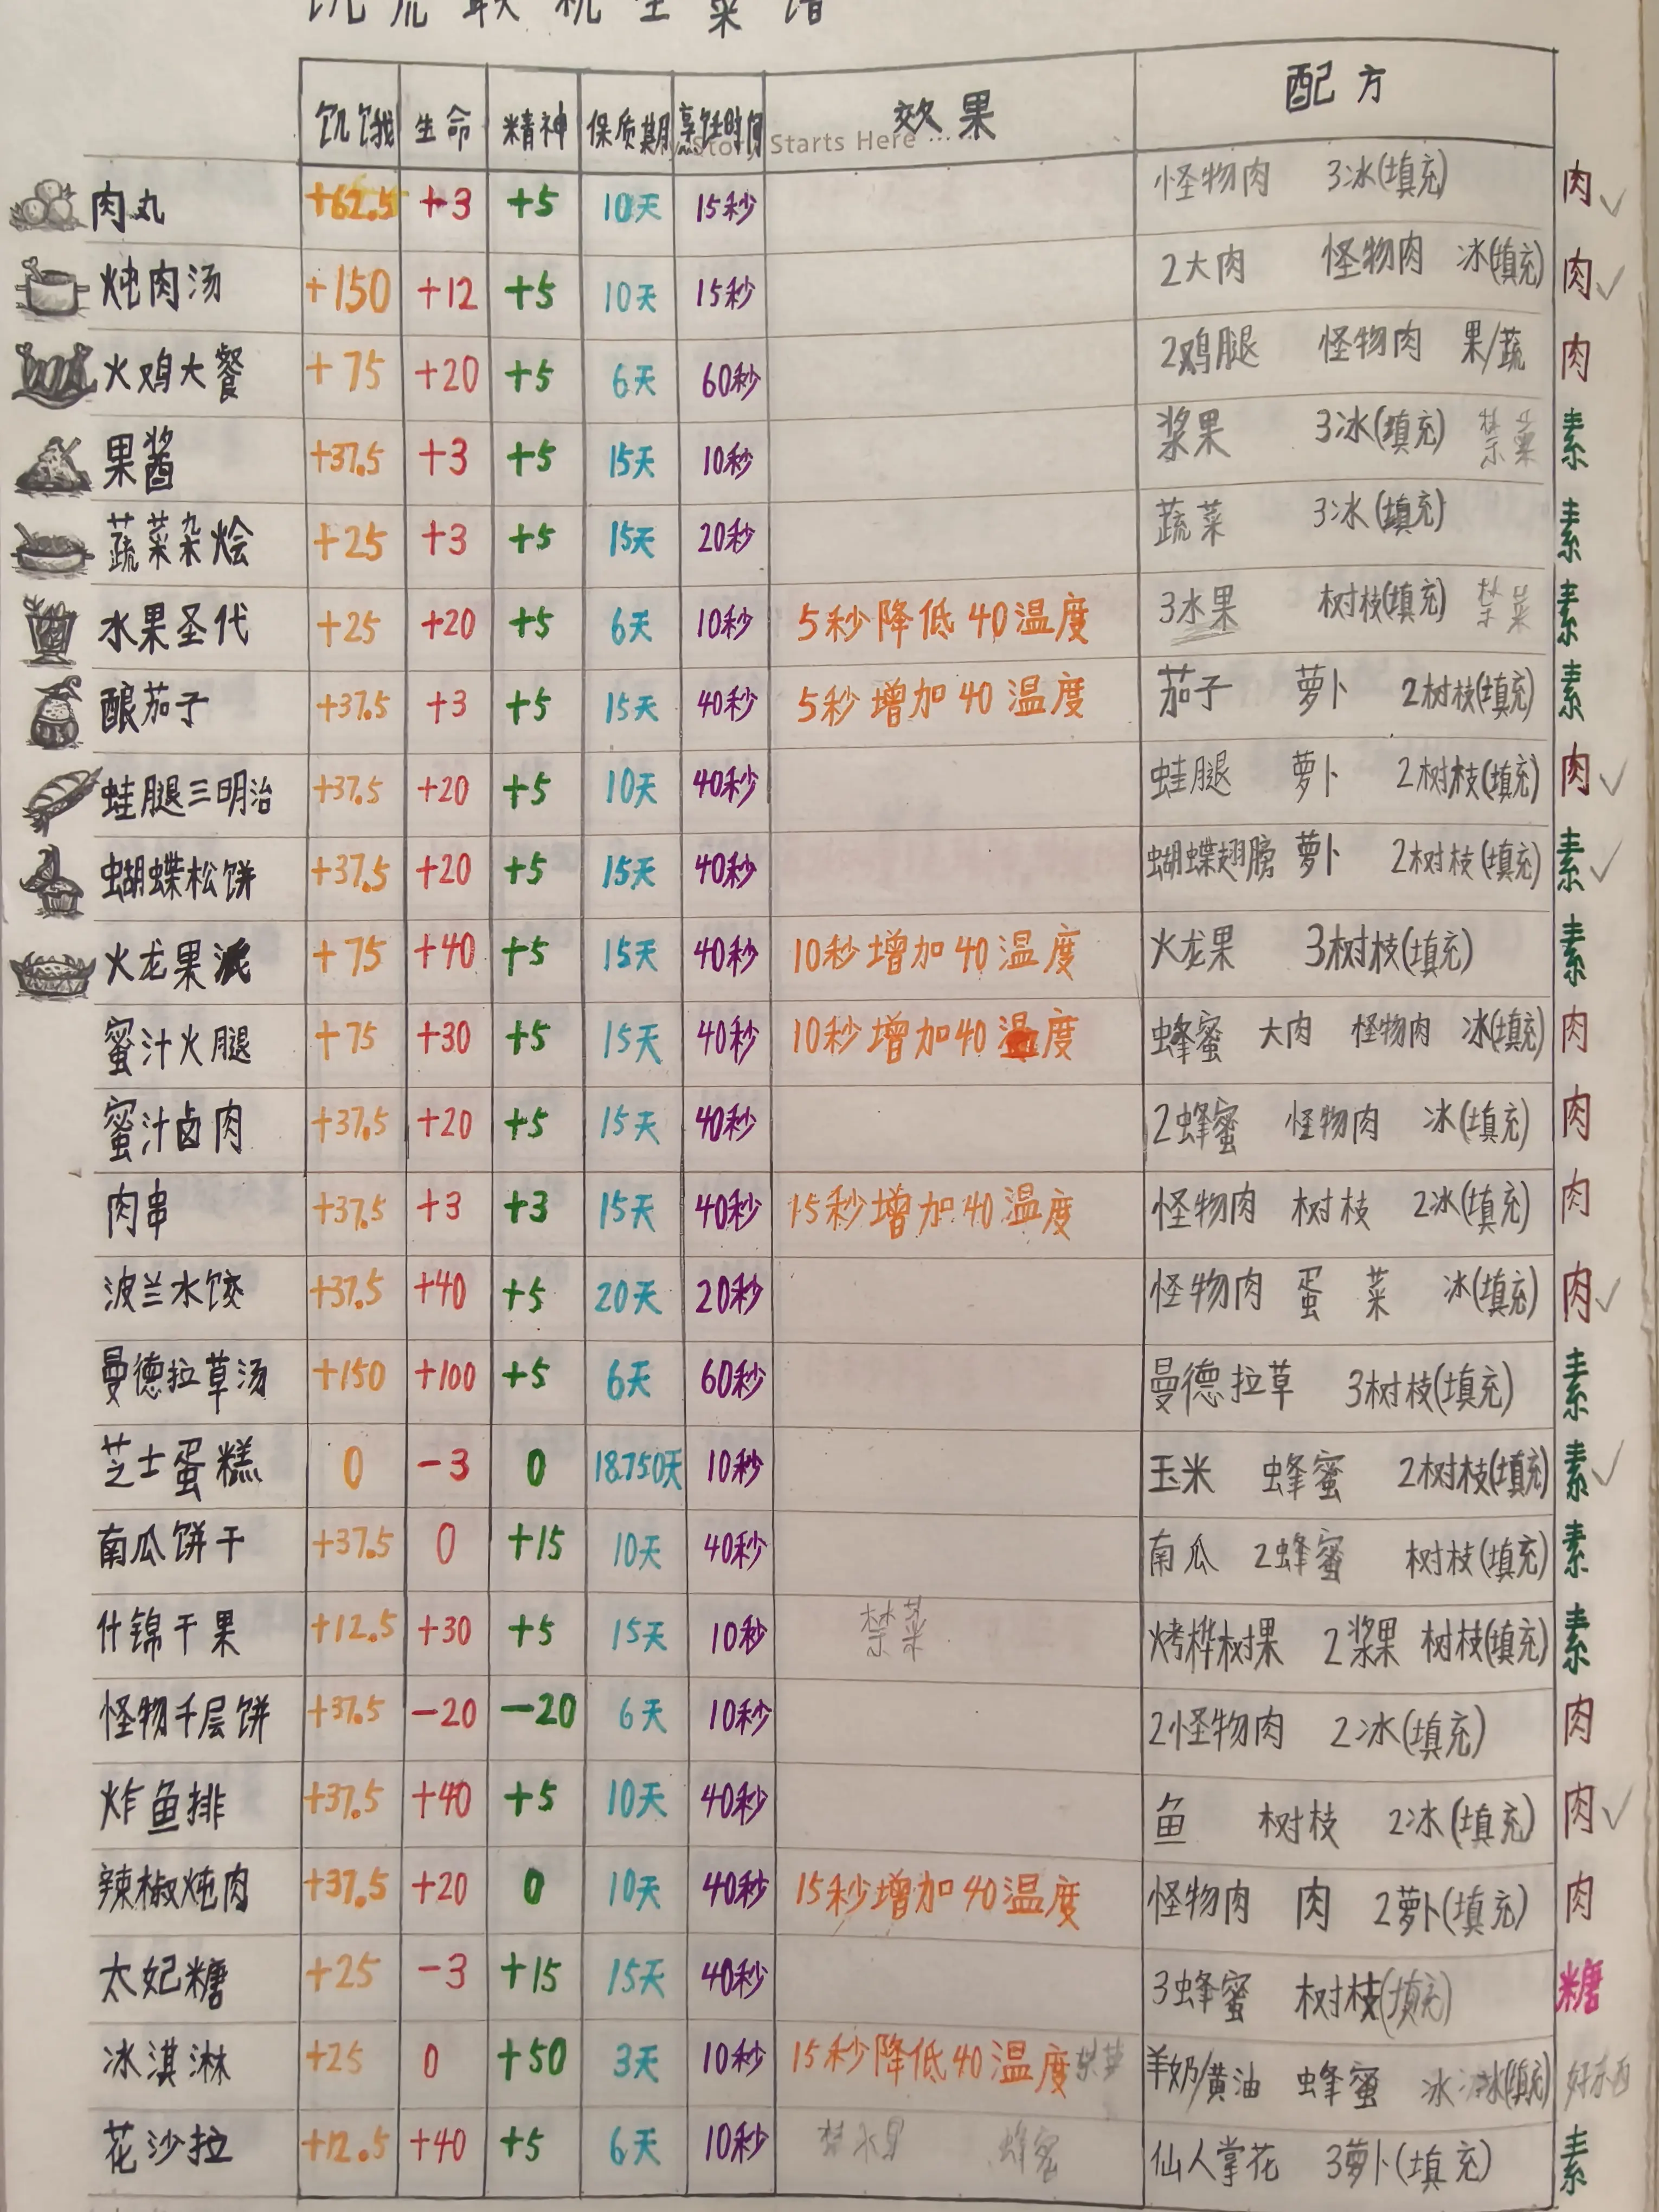 饥荒联机生菜谱
饥饿 生命 精神 保质期 烹饪时间 效果 配方
Story Starts Here ...
肉丸 +62.5 +3 +5 10天 15秒 怪物肉 3冰(填充) 肉 ✓
炖肉汤 +150 +12 +5 10天 15秒 2大肉 怪物肉 冰(填充) 肉 ✓
火鸡大餐 +75 +20 +5 6天 60秒 2鸡腿 怪物肉 果/蔬 肉
果酱 +37.5 +3 +5 15天 10秒 浆果 3冰(填充) 禁菜 素
蔬菜杂烩 +25 +3 +5 15天 20秒 蔬菜 3冰(填充) 素
水果圣代 +25 +20 +5 6天 10秒 5秒降低40温度 3水果 树枝(填充) 禁菜 素
酿茄子 +37.5 +3 +5 15天 40秒 5秒增加40温度 茄子 萝卜 2树枝(填充) 素
蛙腿三明治 +37.5 +20 +5 10天 40秒 蛙腿 萝卜 2树枝(填充) 肉 ✓
蝴蝶松饼 +37.5 +20 +5 15天 40秒 蝴蝶翅膀 萝卜 2树枝(填充) 素 ✓
火龙果派 +75 +40 +5 15天 40秒 10秒增加40温度 火龙果 3树枝(填充) 素
蜜汁火腿 +75 +30 +5 15天 40秒 10秒增加40温度 蜂蜜 大肉 怪物肉 冰(填充) 肉
蜜汁卤肉 +37.5 +20 +5 15天 40秒 2蜂蜜 怪物肉 冰(填充) 肉
肉串 +37.5 +3 +3 15天 40秒 15秒增加40温度 怪物肉 树枝 2冰(填充) 肉
波兰水饺 +37.5 +40 +5 20天 20秒 怪物肉 蛋 菜 冰(填充) 肉 ✓
曼德拉草汤 +150 +100 +5 6天 60秒 曼德拉草 3树枝(填充) 素
芝士蛋糕 0 -3 0 18750天 10秒 玉米 蜂蜜 2树枝(填充) 素 ✓
南瓜饼干 +37.5 0 +15 10天 40秒 南瓜 2蜂蜜 树枝(填充) 素
什锦干果 +12.5 +30 +5 15天 10秒 禁菜 烤桦树果 2浆果 树枝(填充) 素
怪物千层饼 +37.5 -20 -20 6天 10秒 2怪物肉 2冰(填充) 肉
炸鱼排 +37.5 +40 +5 10天 40秒 鱼 树枝 2冰(填充) 肉 ✓
辣椒炖肉 +37.5 +20 0 10天 40秒 15秒增加40温度 怪物肉 肉 2萝卜(填充) 肉
太妃糖 +25 -3 +15 15天 40秒 3蜂蜜 树枝(填充) 糖
冰淇淋 +25 0 +50 3天 10秒 15秒降低40温度 禁菜 羊奶/黄油 蜂蜜 冰 冰(填充) 好东西
花沙拉 +12.5 +40 +5 6天 10秒 禁水果 蜂蜜 仙人掌花 3萝卜(填充) 素